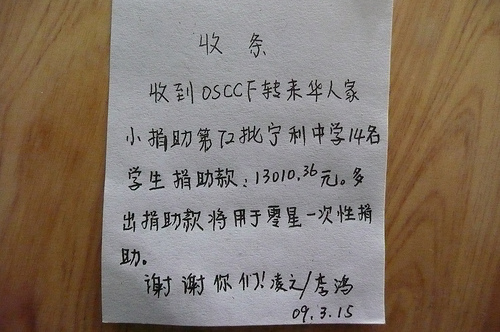 收 条
收到OSCCF转来华人家
小捐助第72批宁利中学14名
学生捐助款:13010.36元。多
出捐助款将用于零星一次性捐
助。
谢谢你们!凌之/李鸿
09.3.15